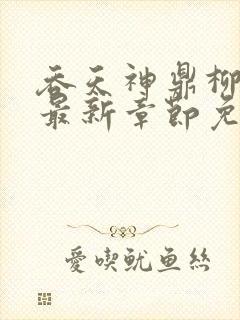 吞天神鼎柳
最新章節免
愛喫魷魚絲